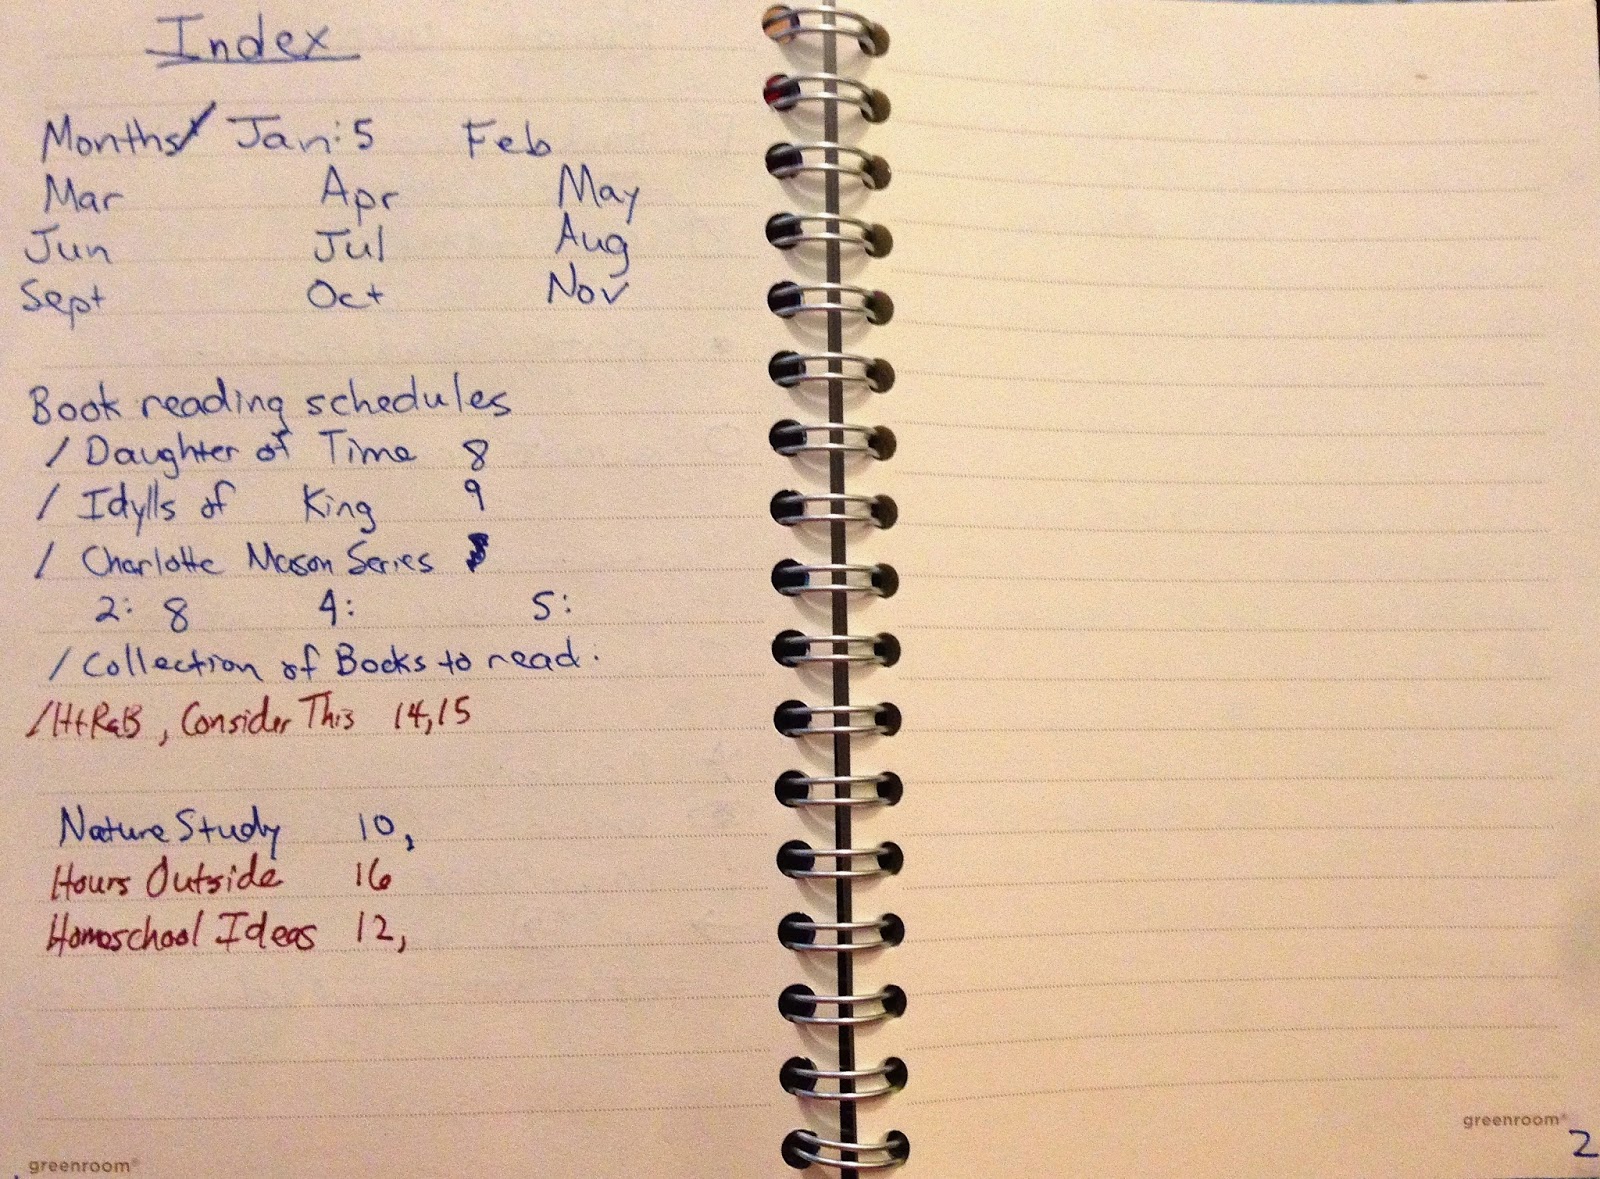 Index
Months/ Jan:5 Feb
Mar Apr May
Jun Jul Aug
Sept Oct Nov
Book reading schedules
/ Daughter of Time 8
/ Idylls of King 9
/ Charlotte Mason Series
2: 8 4: 5:
/ Collection of Books to read:
/HtRaB, Consider This 14,15
Nature Study 10,
Hours Outside 16
Homeschool Ideas 12,
greenroom®
greenroom®
2